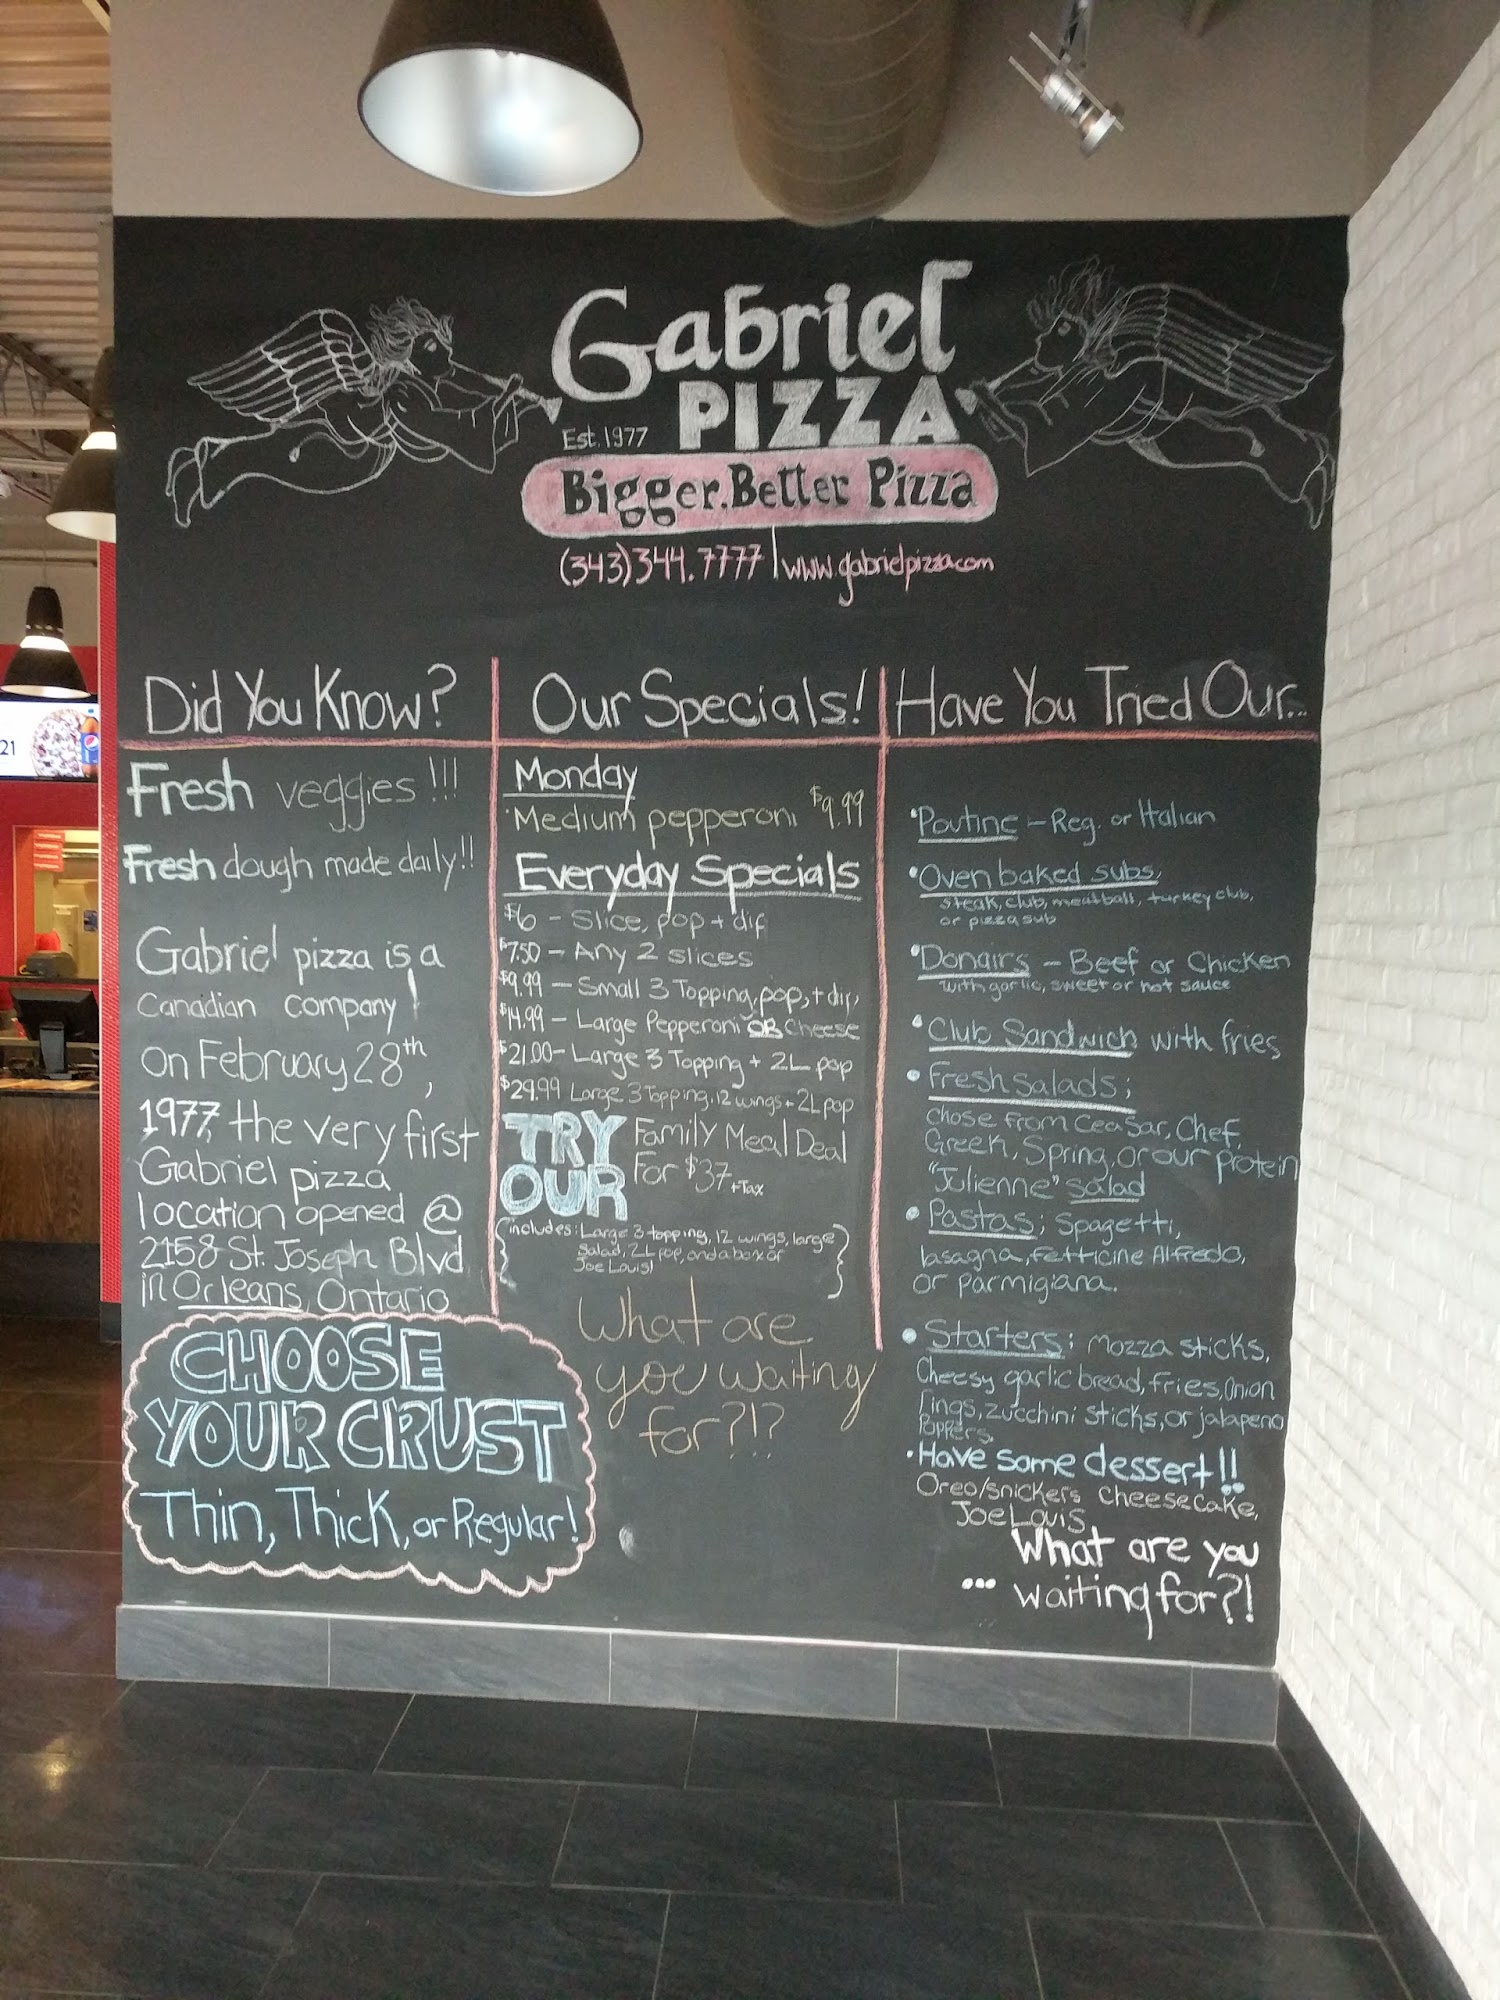 Gabriel
PIZZA
Est. 1977
Bigger. Better Pizza
(343)344.7777 | www.gabrielpizza.com
Did You Know?
Fresh veggies!!!
Fresh dough made daily!!
Gabriel pizza is a
Canadian company!
on February 28th,
1977, the very first
Gabriel pizza
location opened @
2158 St. Joseph Blvd
in Orleans, Ontario
CHOOSE
YOUR CRUST
Thin, Thick, or Regular!
Our Specials!
Monday
·Medium pepperoni $9.99
Everyday Specials
$6 – Slice, pop + dip
$7.50 – Any 2 slices
$9.99 – Small 3 Topping, pop, + dip,
$14.99 – Large Pepperoni OR Cheese
$21.00 – Large 3 Topping + 2L pop
$29.99 Large 3 Topping, 12 wings + 2L pop
TRY
OUR
Family Meal Deal
For $37 +Tax
{includes: Large 3 topping, 12 wings, large
salad, 2L pop, and a box of
Joe Louis!}
What are
you waiting
for?!?
Have You Tried Our...
•Poutine – Reg. or Italian
•Oven baked subs,
steak, club, meatball, turkey club,
or pizza sub
•Donairs – Beef or Chicken
with garlic, sweet or hot sauce
•Club Sandwich with fries
•Fresh salads;
chose from Ceasar, Chef
Greek, Spring, or our protein
"Julienne" salad
•Pastas; Spagetti,
lasagna, Fetticine Alfredo,
or Parmigiana.
•Starters; mozza sticks,
Cheesy garlic bread, fries, Onion
rings, zucchini sticks, or jalapeno
Poppers.
•Have some dessert!!
Oreo/snickers cheesecake,
Joe Louis
What are you
... waiting for?!
21